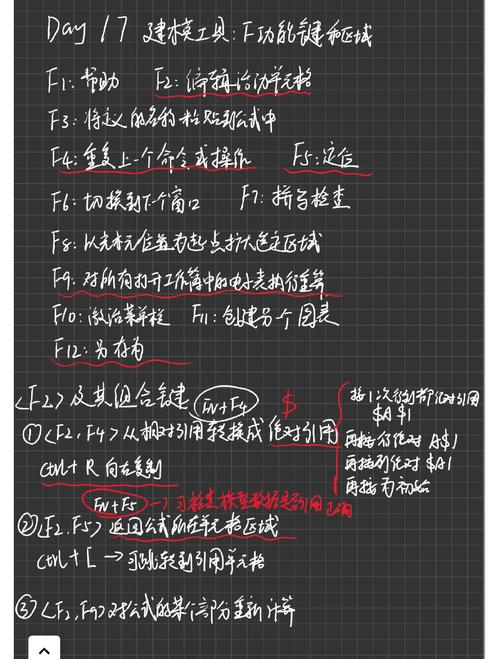 Day 17 建模工具:F功能键和区域
F1:帮助 F2:编辑活动单元格
F3:将定义的名称粘贴到公式中
F4:重复上一个命令或操作 F5:定位
F6:切换到下个窗口 F7:拼写检查
F8:从单元位置为起点扩大选定区域
F9:对所有打开工作簿中的电子表执行重算
F10:激活菜单栏 F11:创建另一个图表
F12:另存为
<F2>及其组合键 Fn+F4 $
①<F2,F4>从相对引用转换成绝对引用
按1次行列都绝对引用
$A$1
再按行绝对 A$1
再按列绝对 $A1
再按为初始
Ctrl+R 向右复制
Fn+F5 →可检查模型数据是否引用正确
②<F2,F5>返回公式所在单元格区域
Ctrl+[ →可跳转到引用单元格
③<F2,F9>对公式的某个部分重新计算